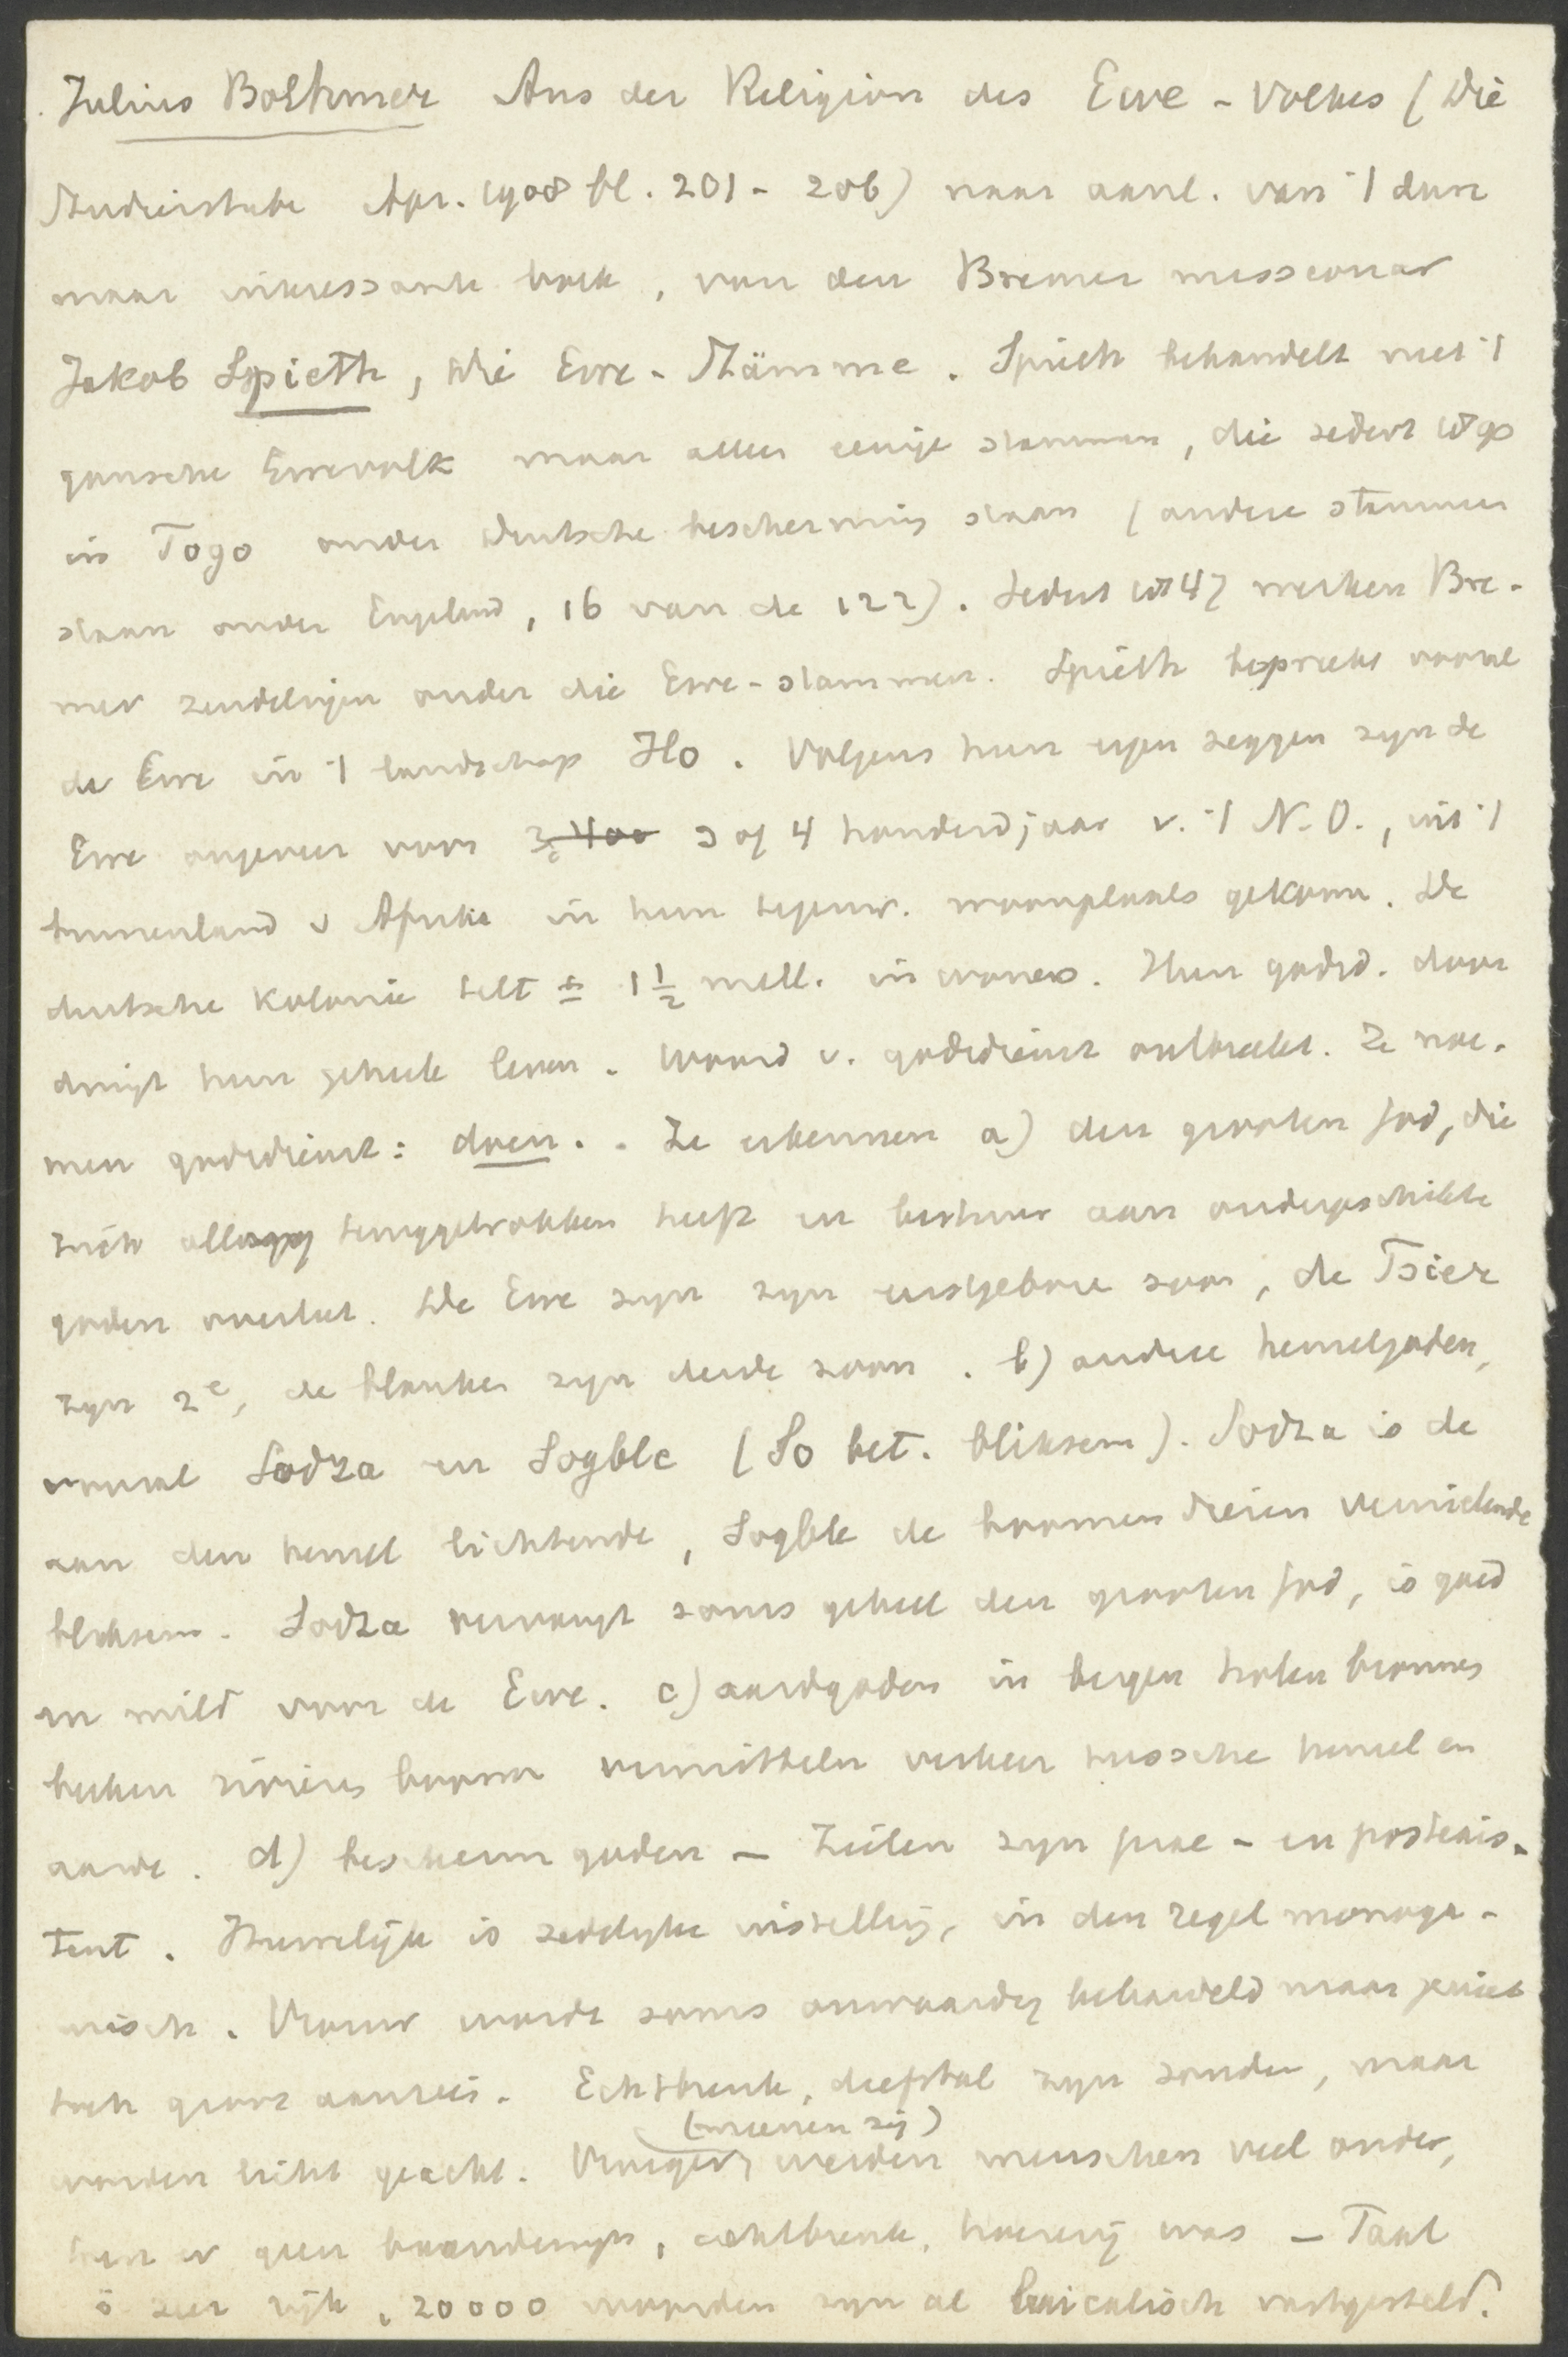 Julius Boehmer Aus der Religion des Ewe - Volkes (Die
Studierstube Apr. 1908 bl. 201 - 206) naar aanl. van 't dure
maar interessante boek, van den Bremer missionar
Jakob Spieth, Die Ewe - Stämme. Spieth behandelt niet 't
gansche Ewevolk maar alleen eenige stammen, die sedert 1890
in Togo onder Duitsche bescherming staan (andere stammen
staan onder Engeland, 16 van de 122). Sedert 1847 werken Bre-
mer zendelingen onder die Ewe-stammen. Spieth bespreekt vooral
de Ewe in 't landschap Ho. Volgens hun eigen zeggen zijn de
Ewe ongeveer voor 3 of 4 honderd jaar v. 't N.O., uit 't
binnenland v Afrika in hun tegenw. woonplaats gekomen. De
duitsche kolonie telt ± 1 1/2 mill. inwoners. Hun godsd. door
dringt hun geheele leven. Woord v. godsdienst ontbreekt. Ze noe-
men godsdienst: doen. Ze erkennen a) den grooten God, die
zich teruggetrokken heeft en bestuur aan ondergeschikte
goden overlaat. De Ewe zijn zijn eerstgebore zoon, de
zijn 2e, de blanken zijn derde zoon. b) andere hemelgoden,
vooral Sodza en Sogble (So bet. bliksem). Sodza is de
aan den hemel lichtende, Sogble de boomen dieren vernielende
bliksem. Sodza vervangt soms geheel den grooten God, is goed
en mild voor de Ewe. c) aardgoden in bergen holen bronnen
beken rivieren boomen vermitteln verkeer tussche hemel en
aarde. d) beschermgoden - Zielen zijn prae - en postexis-
tent. Huwelijk is zedelijke instelling, in den regel monoga-
misch. Vrouw wordt soms onwaardig behandeld maar geniet
toch groot aanzien. Echtbreuk, diefstal zijn zonden, maar
worden licht geacht. Vroeger (meenen zij) werden menschen veel ouder,
toen er geen echtbreuk, hoererij was - Taal
is zeer rijk, 20000 woorden zijn al lexicalisch vastgesteld.